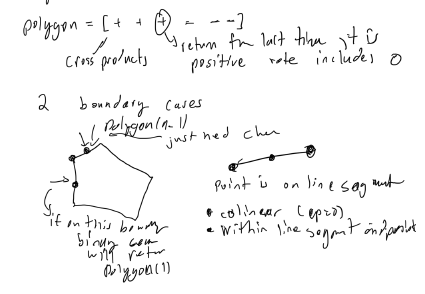 polygon = [+ + + - - -]
cross products
return for last time it is
positive note includes 0
2 boundary cases
polygon(n-1)
just need check
if on this boundary
binary search
will return
polygon(1)
point is on line segment
• colinear (cp=0)
• within line segment endpoints